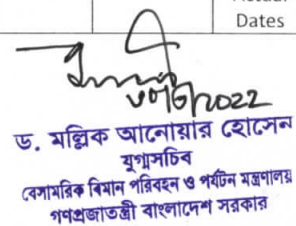 Dates
ড. মল্লিক আনোয়ার হোসেন
যুগ্মসচিব
বেসামরিক বিমান পরিবহন ও পর্যটন মন্ত্রণালয়
গণপ্রজাতন্ত্রী বাংলাদেশ সরকার